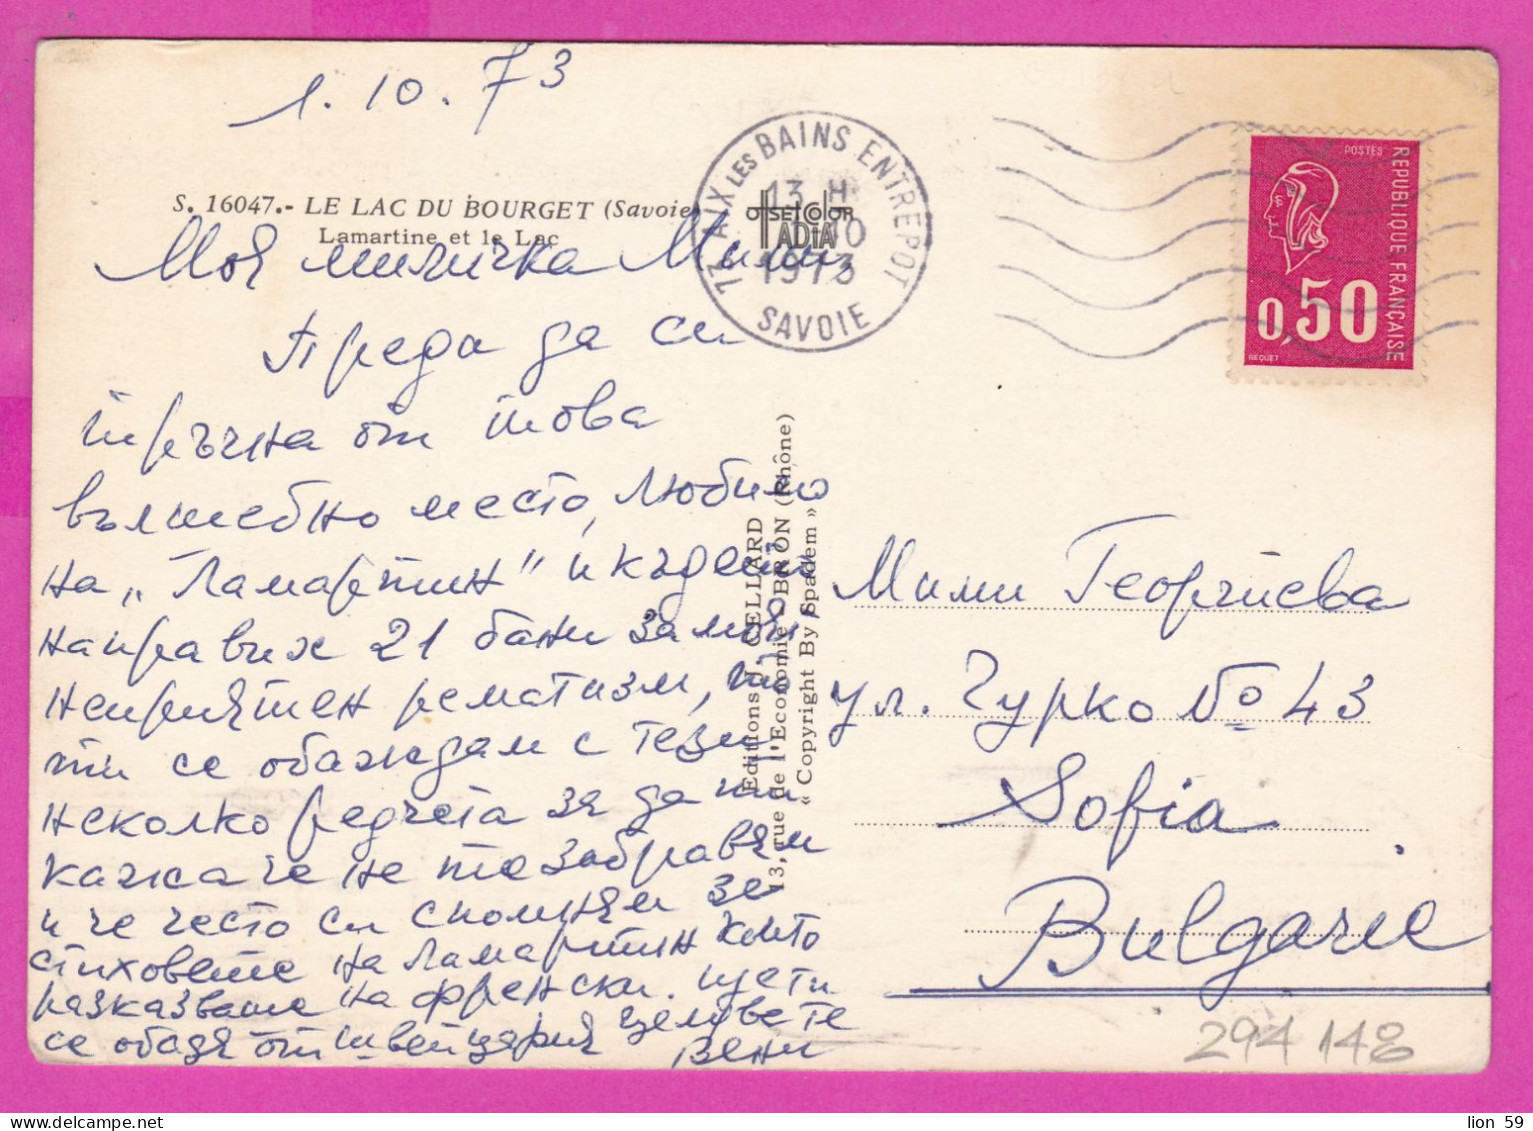 1.10.73
S. 16047.- LE LAC DU BOURGET (Savoie)
Lamartine et le Lac
Моя миличка Мими,
Преди да си
тръгна от това
вълшебно место, любимо
на „Ламартин" и където
направих 21 бани за моя
неприятен рематизм,
ти се обаждам с тези
неколко редчета за да ти
кажа че не те забравям
и че често си спомням за
стиховете на Ламартин които
разказваше на френски. Ще ти
се обадя от Швейцария Целувам те
Вени
73 AIX LES BAINS ENTREPOT
13 H
10
1973
SAVOIE
OFFSET COLOR
IADIA
Editions J. CELLARD
13, rue de l'Economie BRON (Rhône)
« Copyright By Spadem »
POSTES
REPUBLIQUE FRANÇAISE
0,50
BEQUET
Мими Георгиева
ул. Гурко № 43
Sofia
Bulgarie
294 148
lion 59